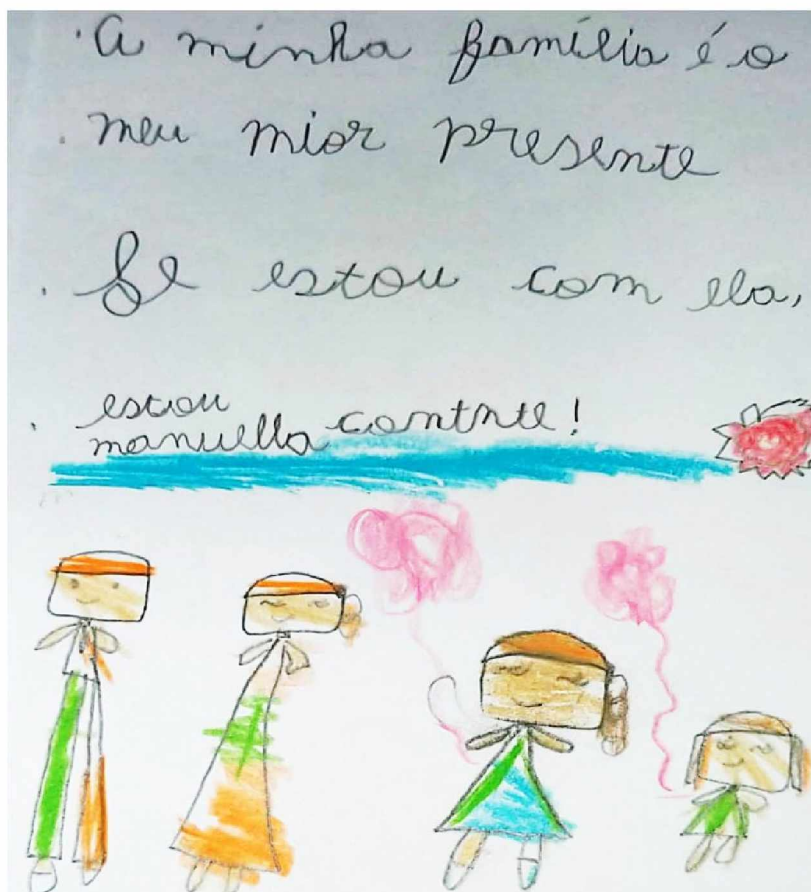 A minha família é o
meu mior presente
Se estou com ela,
estou contnte!
manuella